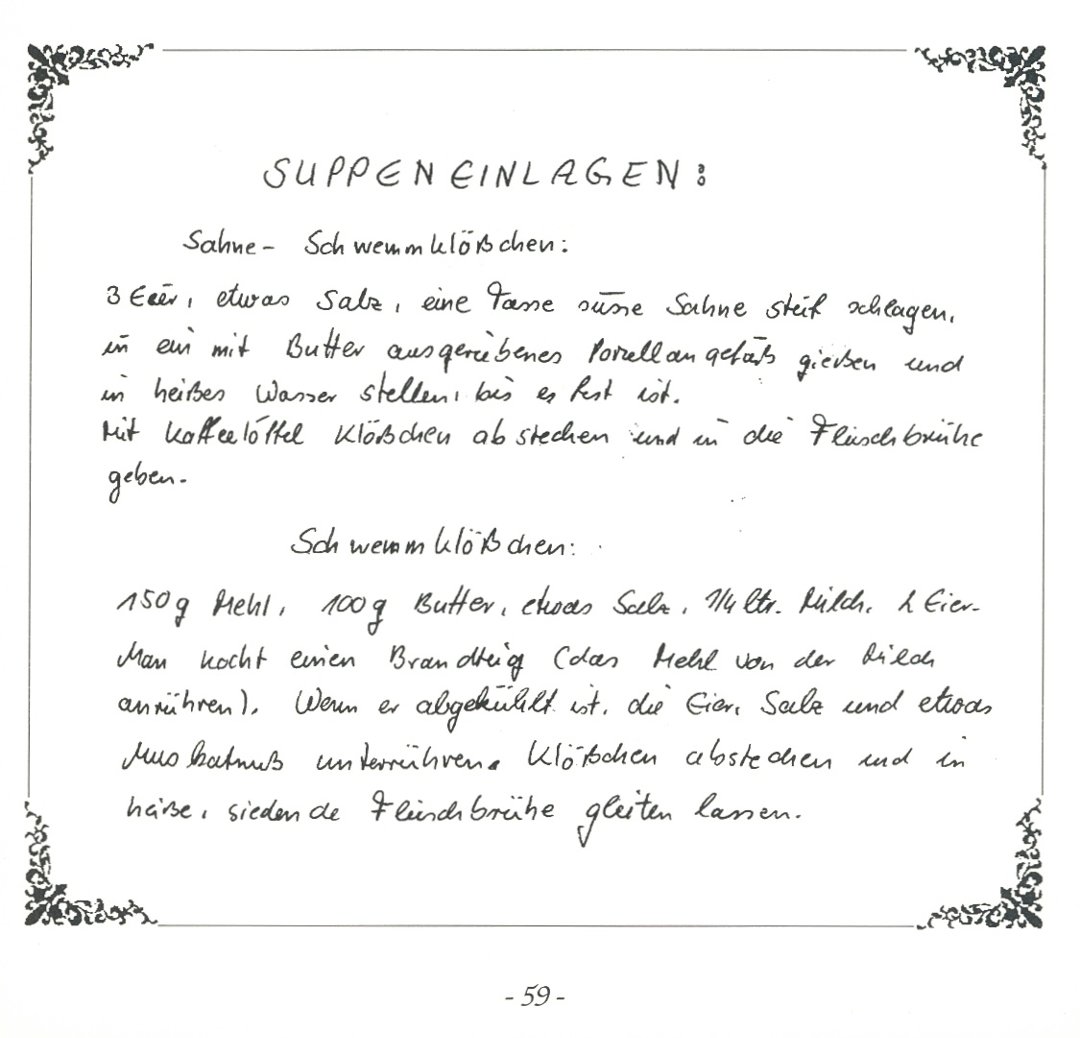 SUPPENEINLAGEN:
Sahne- Schwemmklößchen:
3 Eier, etwas Salz, eine Tasse süsse Sahne steif schlagen,
in ein mit Butter ausgeriebenes Porzellangefäß gießen und
in heißes Wasser stellen, bis es fest ist.
Mit Kaffeelöffel Klößchen abstechen und in die Fleischbrühe
geben.
Schwemmklößchen:
150g Mehl, 100g Butter, etwas Salz, 1/4 ltr. Milch, 2 Eier-
Man kocht einen Brandteig (das Mehl von der Milch
anrühren). Wenn er abgekühlt ist, die Eier, Salz und etwas
Muskatnuß unterrühren. Klößchen abstechen und in
heiße, siedende Fleischbrühe gleiten lassen.
- 59 -